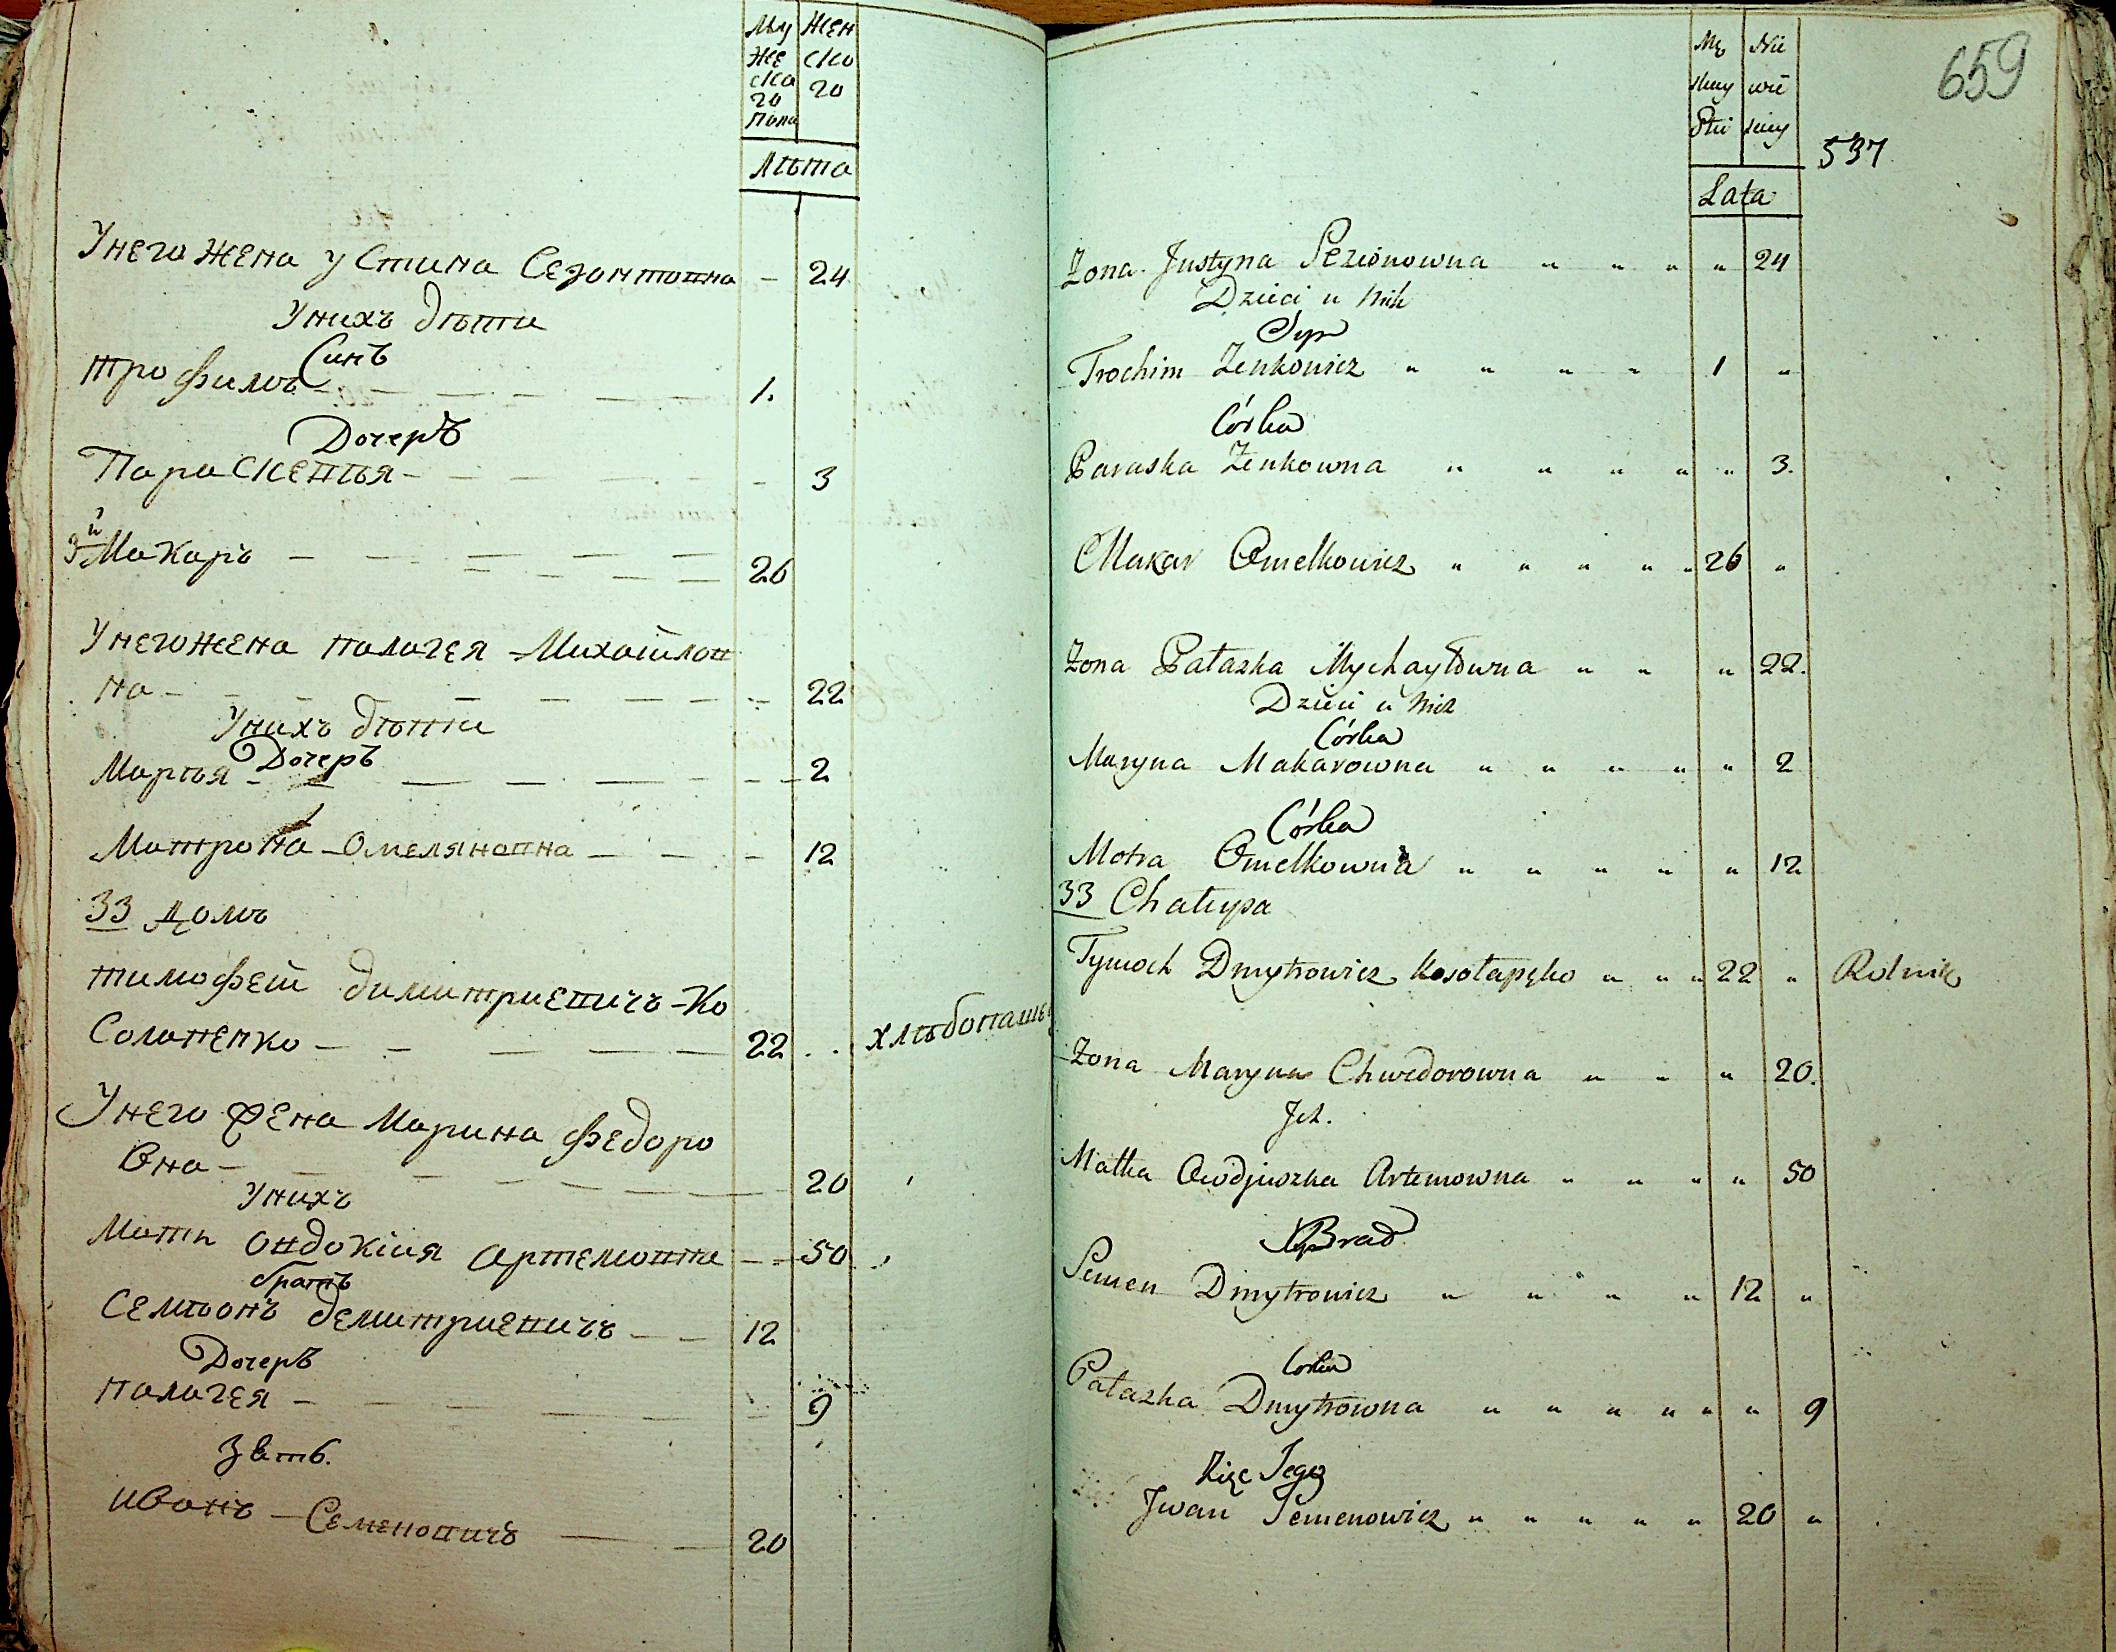 Му Жен
же ско
ска го
го
пола
Лѣта
У него жена Устина Сезонтовна — 24
У нихъ дѣти
Синъ
Трофимъ — — — — 1.
Дочеръ
Параскевья — — — — 3
3й Макаръ — — — — 26
У него жена Палагея Михайлов
на — — — — 22
У нихъ дѣти
Дочеръ
Марья — — — — 2
Матрона Омеляновна — — — 12
33 Домъ
Тимофей Димитриевичъ Ко
солапенко — — — — 22 . . хлѣбопашец
У него жена Марина Федоро
вна — — — — 20
У нихъ
Мать Овдокия Артемовна — — 50
братъ
Семіонъ Демитриевичъ — — 12
Дочеръ
Палагея — — — — 9
Зять.
Иванъ Семеновичъ — — 20
659
Mę Nie
skiey wie
Płci sciey
537
Lata
Żona Justyna Sezionowna " " " " 24
Dzieci u Nich
Syn
Trochim Zenkowicz " " " " 1 "
Córka
Paraska Zenkowna " " " " " 3.
Makar Omelkowicz " " " " " 26 "
Żona Pałazka Mychayłowna " " " 22.
Dzieci u Nich
Córka
Maryna Makarowna " " " " " 2
Córka
Motra Omelkowna " " " " " 12
33 Chałupa
Tymoch Dmytrowicz Kosołapęko " " " 22 " Rolnik
Żona Maryna Chwedorowna " " " 20.
Ich.
Matka Owdjuszka Artemowna " " " " 50
Brad
Semen Dmytrowicz " " " " 12 "
Corka
Pałazka Dmytrowna " " " " " " 9
Zięc Jego
Jwan Semenowicz " " " " " 20 "